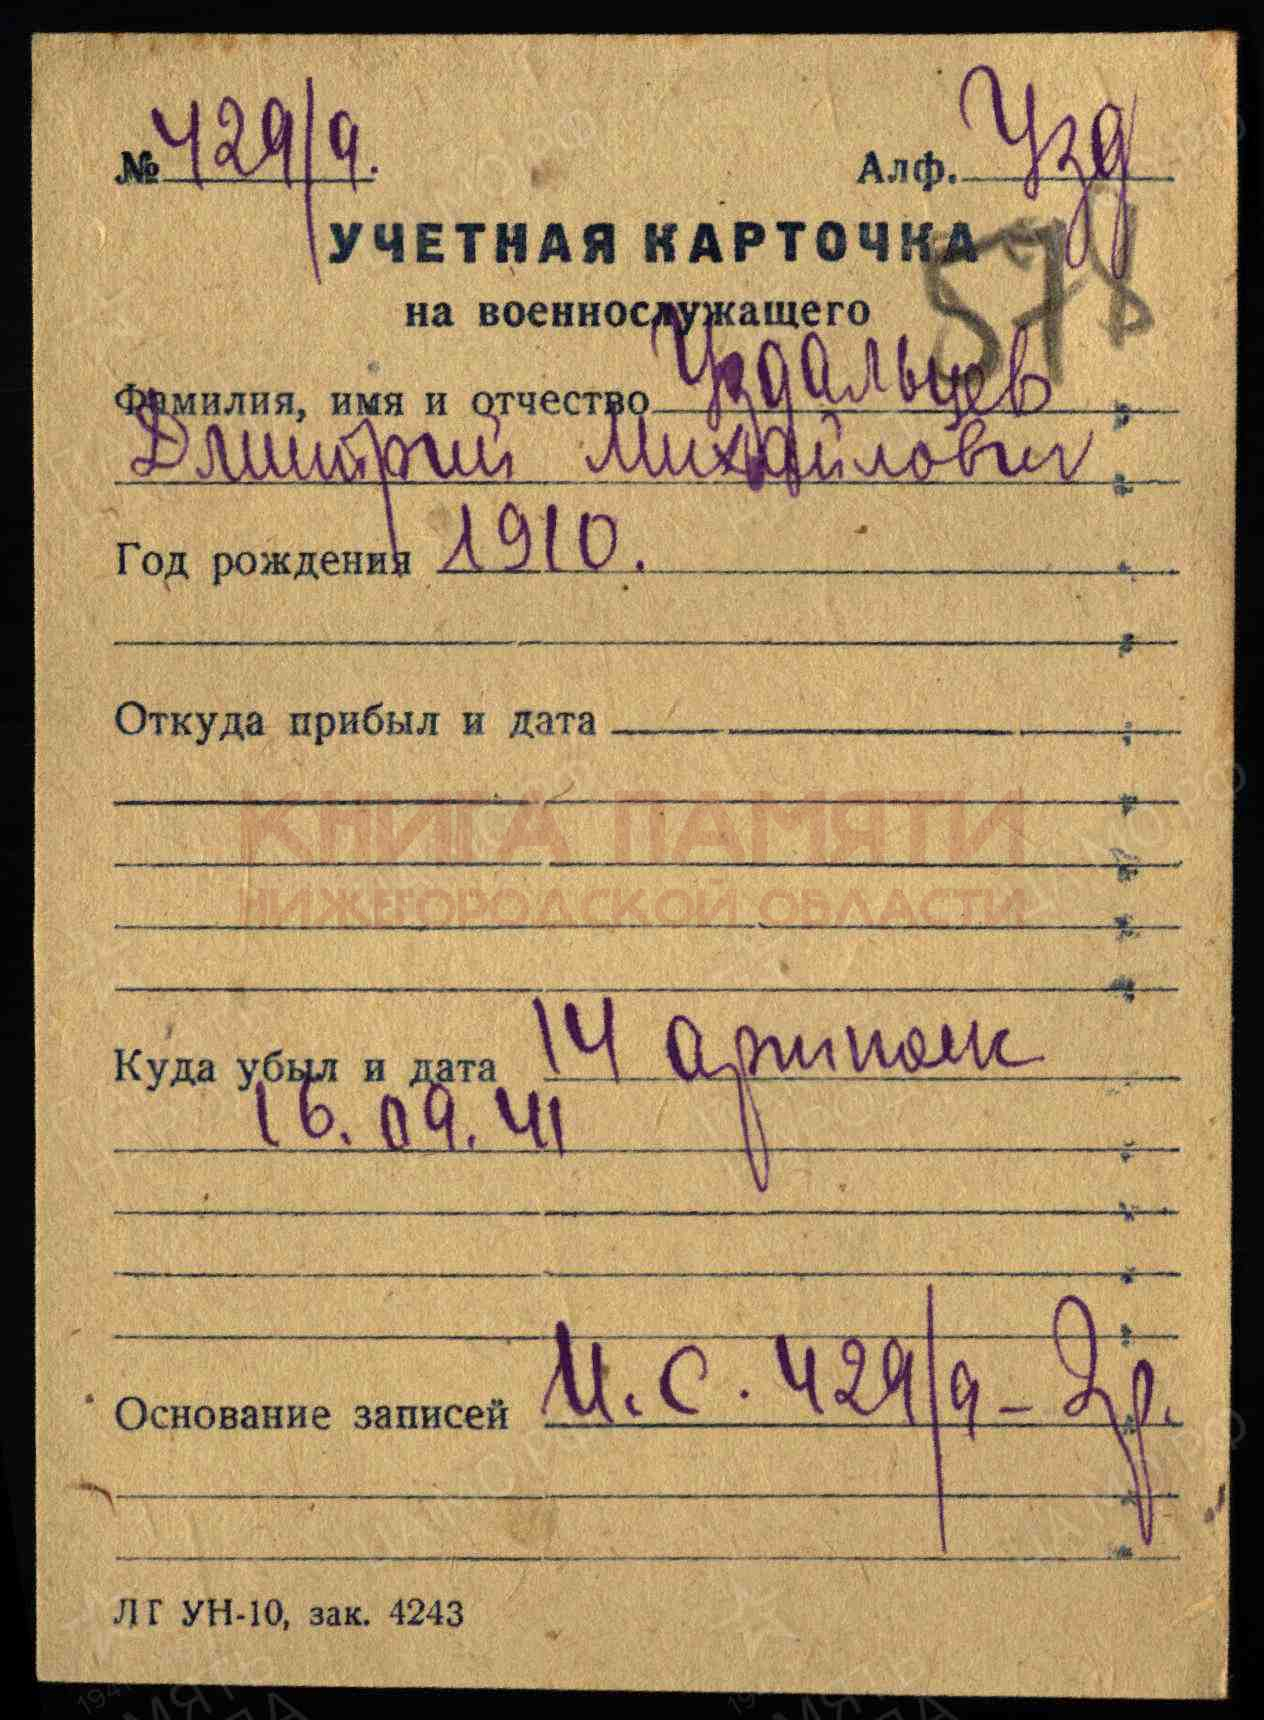 № 429/9. Алф. Узд
УЧЕТНАЯ КАРТОЧКА
578
на военнослужащего
Фамилия, имя и отчество Уздальцев
Дмитрий Михайлович
Год рождения 1910.
Откуда прибыл и дата
КНИГА ПАМЯТИ
НИЖЕГОРОДСКОЙ ОБЛАСТИ
Куда убыл и дата 14 артполк
16.09.41
Основание записей И.С. 429/9 -
ЛГ УН-10, зак. 4243